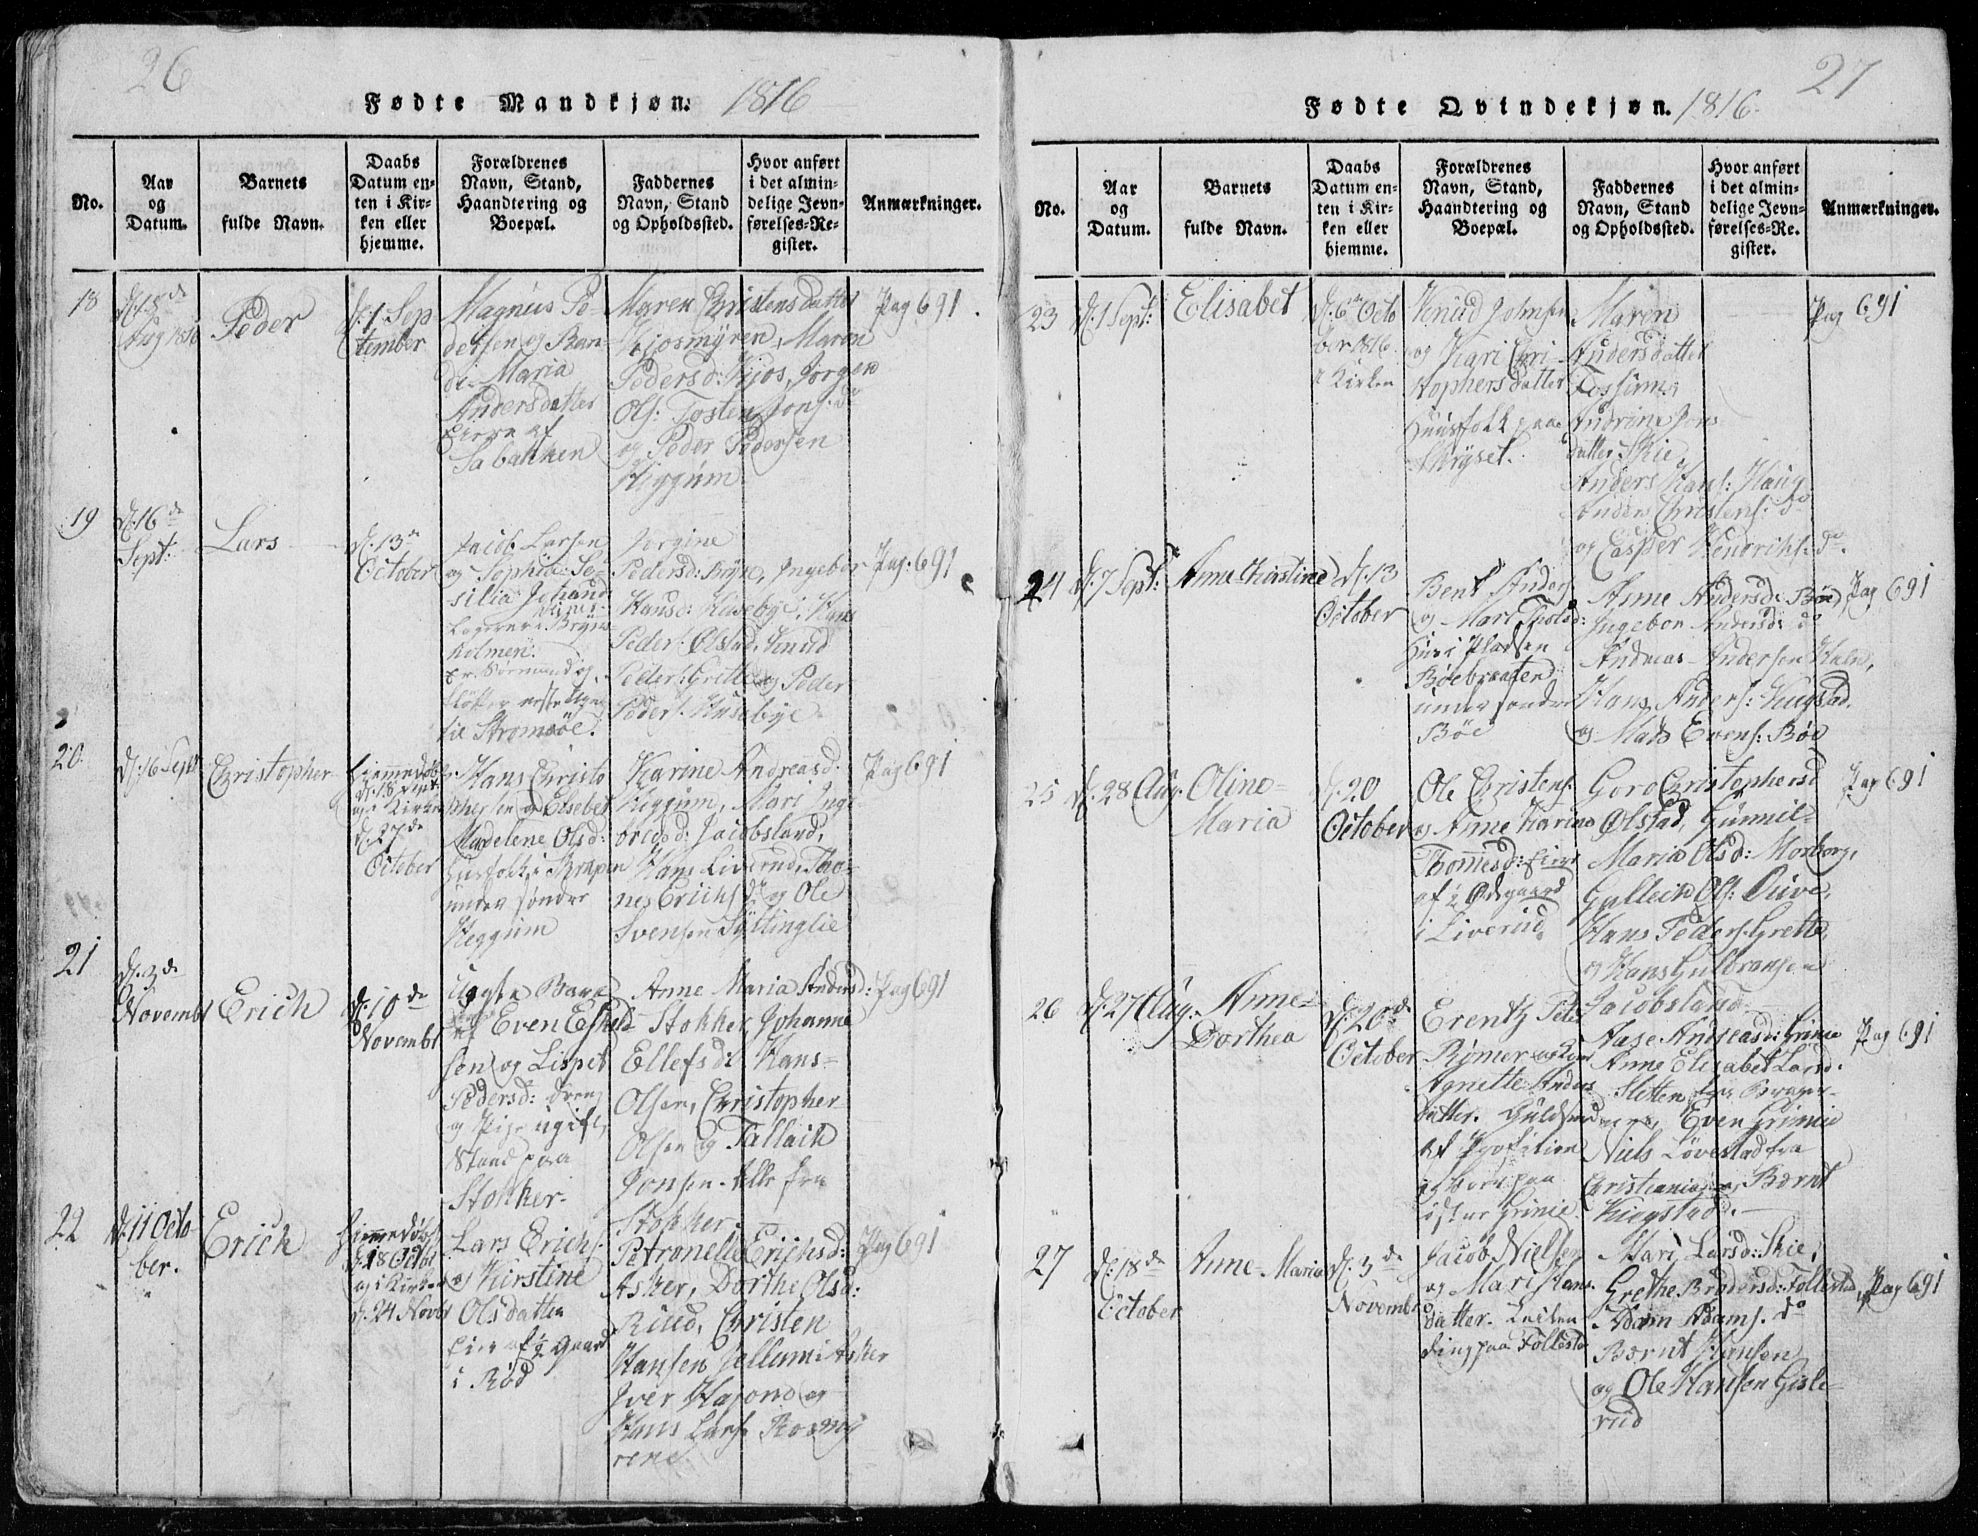 26
Fødte Mandkjøn. 1816
No.
Aar
og
Datum.
Barnets
fulde Navn.
Daabs
Datum en-
ten i Kir-
ken eller
hjemme.
Forældrenes
Navn, Stand,
Haandtering og
Boepæl.
Faddernes
Navn, Stand
og Opholdssted.
Hvor anført
i det almin-
delige Jevn-
førelses-Re-
gister.
Anmærkninger.
18
Aug 1816
Peder
d: 1 Sep
tember
Magnus Pe-
dersen og
Maria
Andersdatter
af
Sabakken
Maren Christensdatter
Kjosmyren, Maren
Pedersd: Kjos, Jørgen
Ols: Tosten Jons: do
og Peder Pedersen
Higgum
Pag 691
19
d: 16 de
Sept:
Lars
d: 13
October
Jacob Larsen
og Sophia Se-
silia Johansd:
Brÿns
holmen.
til Stromsöe.
Jorgine
Pedersd: Brÿn, Ingebor
Hansd: Huseby, Hans
Peders: Ølstad, Knud
Peders: Grette og Peder
Peders: Husebÿe
Pag: 691
20.
d: 16 Sept
Christopher
Hjemmedøbt
d: 18 Sept
og i Kirken
d: 27 de
October
Hans Christo
phersen og Elsebet
Madelene Olsd:
Husfolk i
under søndre
Heggum
Karine Andreasd:
Heggum, Mari Inge-
bretsd: Jacobsland,
Hans Liverud, Tho-
nes Erichs do og Ole
Svensen Sÿttinglie
Pag 691
21
d: 3 de
Novembr
Erich
d: 10 de
Novembr
Uægte Barn
af Even
sen og Lispet
Pedersd: Dreng
og Pige ugift
Stand paa
Stokker.
Anne Maria Andersd:
Stokker, Johanne
Ellefsd: Hans
Olsen, Christopher
Olsen og Tallaih
Jonsen. Alle fra
Stokker.
Pag 691
22
d: 11 Octo
ber.
Erich
Hjemmedøbt
d: 18 Octob
og i Kirken
d: 24 Novbr
Lars Erichs:
og Kirstine
Olsdatter
Eier af ½ gaard
i Rød
Petronelle Erichsd:
Asker, Dorthe Olsd:
Ruud, Christen
Hansen Jellum i Asker
Iver og
Hans Lars:
Pag 691
27
Fødte Qvindekjøn. 1816.
No.
Aar
og
Datum.
Barnets
fulde Navn.
Daabs
Datum en-
ten i Kir-
ken eller
hjemme.
Forældrenes
Navn, Stand,
Haandtering og
Boepæl.
Faddernes
Navn, Stand
og Opholdssted.
Hvor anført
i det almin-
delige Jevn-
førelses-Re-
gister.
Anmærkninger.
23
d: 1 Sept:
Elisabet
d: 6 Octo
ber 1816
i Kirken
Knud Johnsen
og Kari Chri-
stophersdatter
Huusfolk paa
Maren
Andersdatter
Fossum,
Andrine Jons
datter Skie
Anders Hans: Haug
Anders Christens: do
og Casper Hendrichs: do.
Pag 691
24
d: 7 Sept:
Anne Kirstine
d: 13
October
Bent Anders:
og Mari
Huus i Pladsen
Böebraaten
under søndre
Böe
Anne Andersd: Böe
Ingebor Andersd: do
Andreas Andersen Haln,
Hans Anders:
og Mads Evens: Böe
Pag 691
25
d: 28 Aug.
Oline
Maria
d: 20
October
Ole Christens:
og Anne Karine
Thomesd: Eier
af ½ Ødegaard
i Liverud.
Goro Christophersd
Ølstad, Gunnil-
Maria Olsd: Morberg,
Gulleich Ols: Duve,
Hans Peders: Grette,
og Hans Gulbransen
Jacobsland
Pag 691
26
d: 27 Aug.
Anne-
Dorthea
d: 20 de
October
Erentz Peter
Rømer
Agnette Anders
datter. Guldsmed
af Profession
og boer paa
østre Grinie
Aase Andreasd: Grinie
Anne Elisabet Larsd:
Sletten
Even Grinie
Niels Løvestad fra
Christiania og Bærnt
Pag 691
27
d: 18 de
October
Anne Maria
d: 3 de
Novembr
Jacob Nielsen
og Mari Hans
datter.
paa Follestad
Mari Larsd: Skie,
Grethe Brødersd: Follestad,
Adam Adams: do
Bærnt Hansen
og Ole Hansen Gisle-
rud
Pag 691